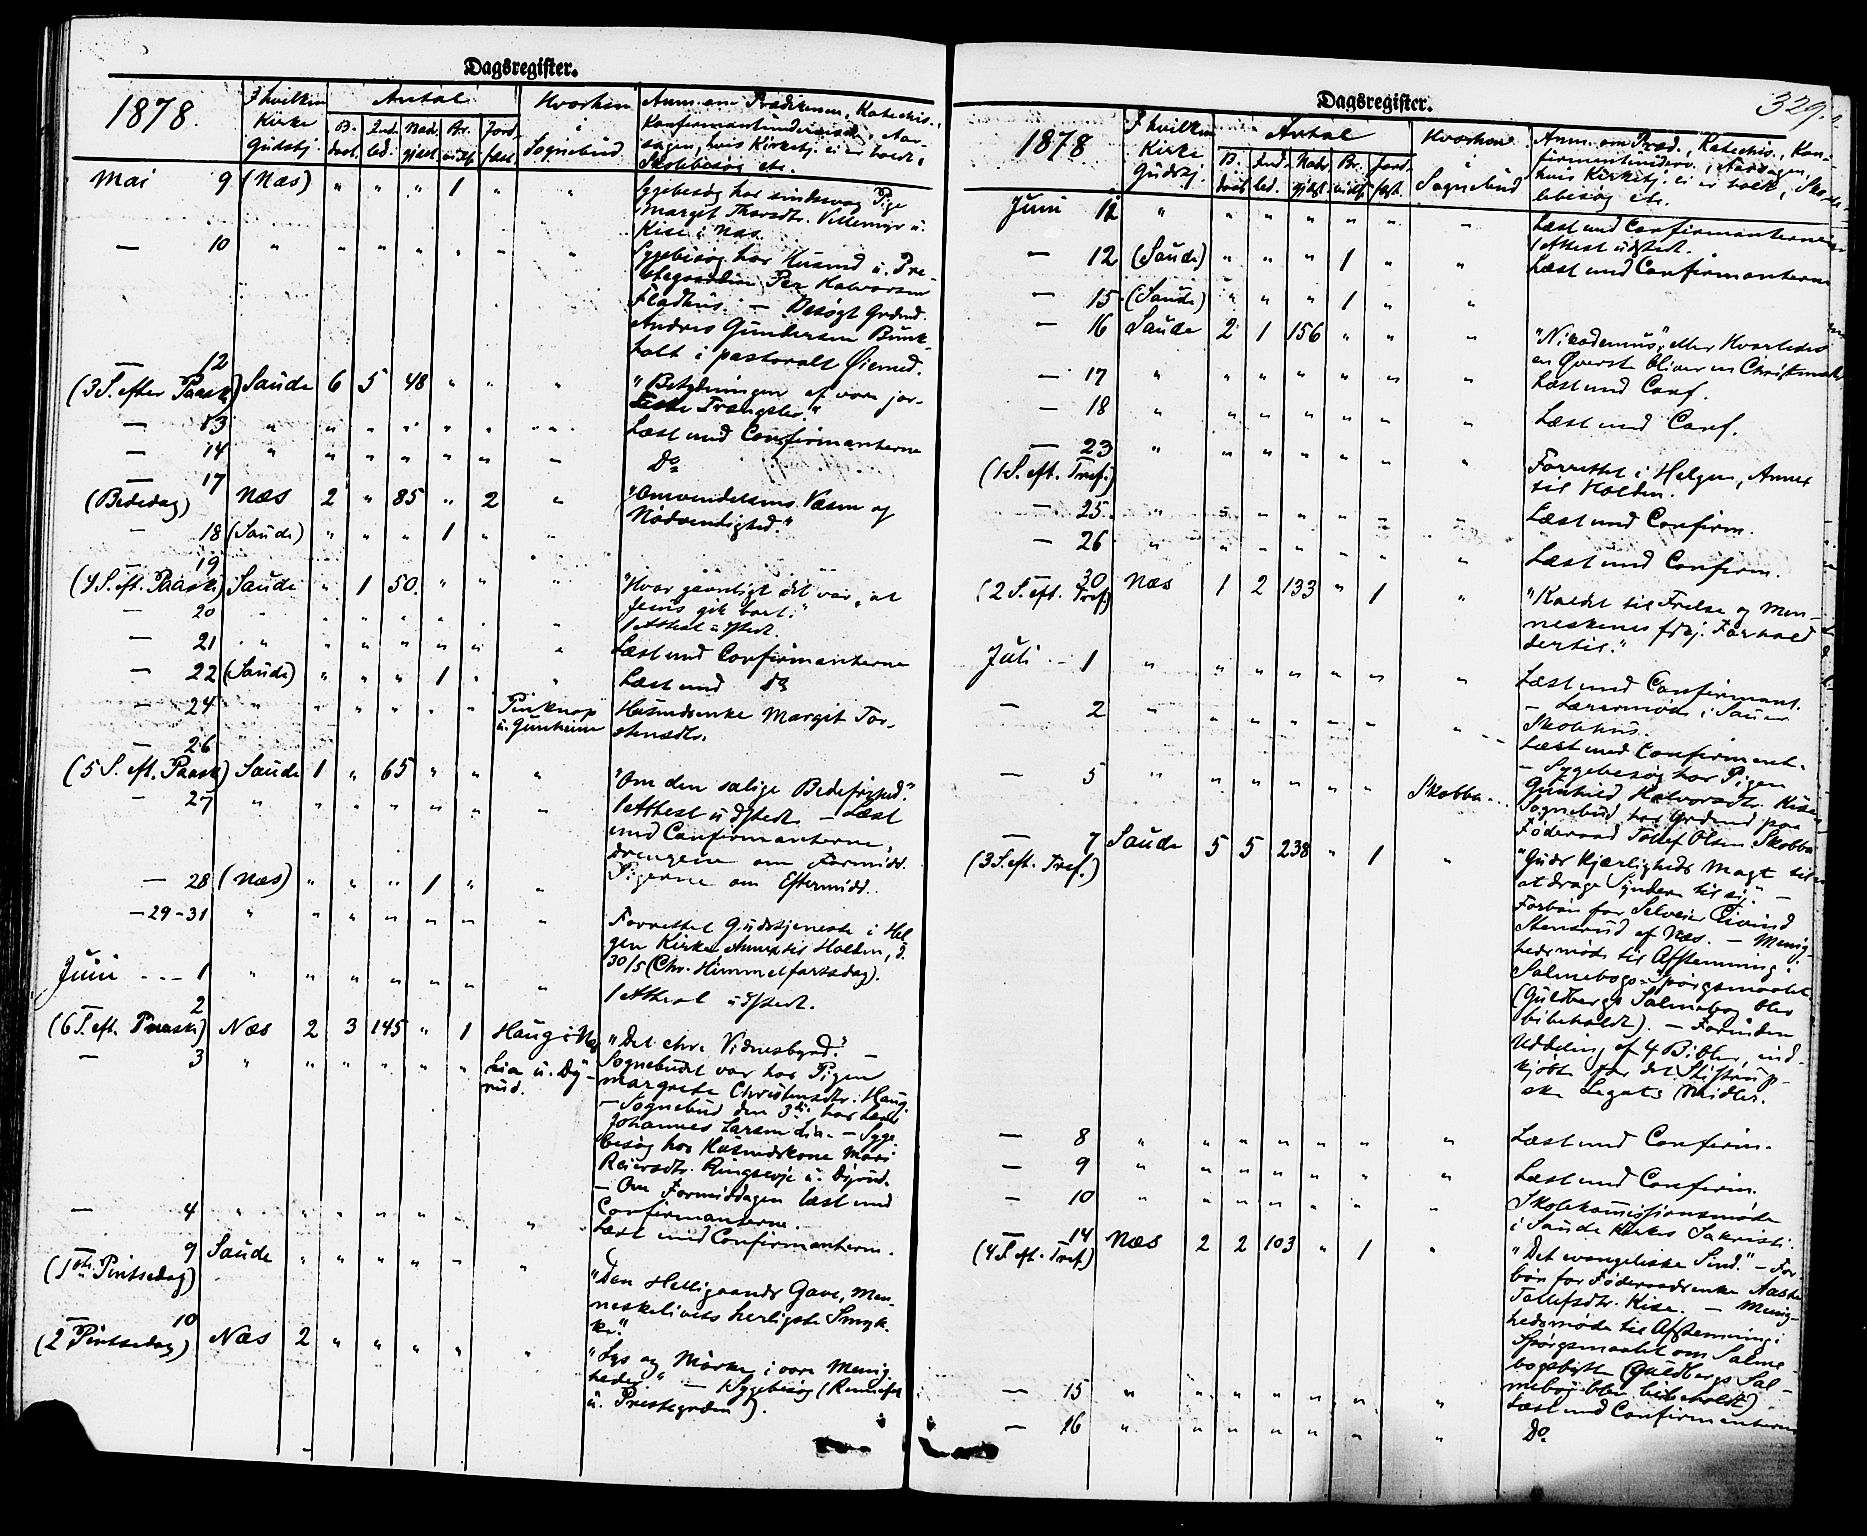 Dagsregister.
1878.
I hvilken Kirke Gudstj.
Antal
B. døbt | Ind. led. | Nad. gjæst. | Br. vidf. | Jord. fæst.
Hvorhen i Sognebud
Anm. om Prædikenen, Katechis.,
Konfirmantunderviisn., Aar-
sagen, hvis Kirketj. ei er holdt,
Skolebesøg etc.
Mai 9 (Næs) " " " 1 " "
Sygebesøg hos sindssvag Pige
Margit Thorsdtr. Villemyr u.
Kise i Næs
— 10 " " " " " " "
Sygebesøg hos Husmd u. Præ-
stegaarden Per Halvorsen
Fladhus. — Besøgt Grdmd.
Andres Gundersen Bunk-
holt i pastoralt Øiemed.
— 12
(3 S. efter Paask.) Saude 6 5 48 " " "
"Betydningen af vore jor-
diske Trængsler"
— 13 " " " " " " "
Læst med Confirmanterne
— 14 " " " " " " "
Do
— 17
(Bededag) Næs 2 " 85 " 2 "
"Omvendelsens Væsen og
Nødvendighed."
— 18 (Saude) " " " 1 " "
— 19
(4 S. eft. Paask.) Saude " 1 50. " " "
"Hvor gavnligt det var, at
Jesus gik bort."
— 20 " " " " " " "
1 Attest udstedt.
— 21 " " " " " " "
Læst med Confirmanterne
— 22 (Saude) " " " 1 " "
Læst med do
— 24 " " " " " "
u. Gunheim
Husmdsenke Margit Tor-
stensdtr.
— 26
(5 S. eft. Paask) Saude 1 " 65 " " "
"Om den salige Bedefryd."
— 27 " " " " " " "
1 Attest udstedt — Læst
med Confirmanterne,
drengene om Formidd.
Pigerne om Eftermidd.
— 28 (Næs) " " " 1 " "
— 29-31 " " " " " " "
Forrettet Gudstjeneste i Hel-
gen Kirke Annex til Holden, d.
30/5 (Chr. Himmelfartsdag).
Juni - - - 1 " " " " " " "
1 Attest udstedt.
2
(6 S. eft. Paask) Næs 2 3 145 " 1 Haug i Næs
"Det chr. Vidnesbyrd." —
— 3 " " " " " " Lia u. Dy-
rud.
Sognebudet var hos Pigen
Margrete Christensdtr. Haug.
— Sognebud den 3die hos
Johannes Larsen Lia. — Syge-
besøg hos Husmdskone Mari
Reiersdtr. Ringsevje u. Dyrud.
— Om Formiddagen læst med
Confirmanterne.
— 4 " " " " " " "
Læst med Confirmantern.
— 9
(1ste Pintsedag) Saude " " " " " "
"Den Helligaands Gave, Men-
neskelivets herligste Smyk-
ke."
— 10
(2 Pintsedag) Næs 2 " " " " "
"Lys og Mørke i vore Menig-
heder" — 1 Sygebesøg (
u. Præstegrden).
Dagsregister.
329.
1878
I hvilken Kirke Gudstj.
Antal
B. døbt | Ind. led. | Nad. gjæst. | Br. vidf. | Jord. fæst.
Hvorhen i Sognebud
Anm. om Præd., Katechis., Kon-
firmantunderv., Aarsagen,
hvis Kirketj. ei er holdt, Sko-
lebesøg etc.
Juni 11 " " " " " " "
Læst med Confirmanterne
1 Attest udstedt.
— 12 (Saude) " " " 1 " "
Læst med Confirmanterne
— 15 (Saude) " " " 1 " "
— 16 Saude 2 1 156 " " "
"Nikodemus, eller Hvorledes
en Øverste bliver en Christen
— 17 " " " " " " "
Læst med Conf.
— 18 " " " " " " "
Læst med Conf.
— 23
(1 S. eft. Tref.) " " " " " " "
Forrettet i Helgen, Annex
til Holden.
— 25 " " " " " " "
Læst med Confirm.
— 26 " " " " " " "
Læst med Confirm.
— 30
(2 S. eft. Tref) Næs 1 2 133 " 1 "
"Kaldet til Frelse og Men-
neskenes fskj. Forhold
dertil."
Juli - - 1 " " " " " " "
Læst med Confirmant.
— Lærermøde i Sauer
Skolehus.
— 2 " " " " " " "
Læst med Confirmant.
— Sygebesøg hos Pigen
Gunhild Halvorsdtr. Kise
— 5 " " " " " " Skobba
Sognebud hos Grdmd paa
Føderaad Tollef Olsen Skobba
— 7
(3 S. eft. Tref.) Saude 5 5 238 " 1 "
"Guds Kjærligheds Magt til
at drage Synderen til sig." —
Forbøn for Selveier Eivind
Stensrud af Næs. — Menig-
hedsmøde til Afstemning i
Salmebogs-Spørgsmaalet
(Guldbergs Salmebog blev
bibeholdt). — Foruden
Uddeling af 4 Bibler, ind-
kjøbte for det Stistrup-
ske Legats Midler.
— 8 " " " " " " "
Læst med Confirm.
— 9 " " " " " " "
Læst med Confirm.
— 10 " " " " " " "
Skolekommissionsmøde
i Saude Kirkes Sakristi.
— 14
(4 S. eft. Tref) Næs 2 2 103 " 1 "
"Det evangeliske Sind." — For-
bøn for Føderaadsenke Aaste
Tollefsdtr. Kise. — Menig-
hedsmøde til Afstemning i
Spørgsmaalet om Salme-
bogsbytte (Guldbergs Sal-
mebog blev bibeholdt)
— 15 " " " " " " "
Læst med Confirmanterne
— 16 " " " " " " "
Do.